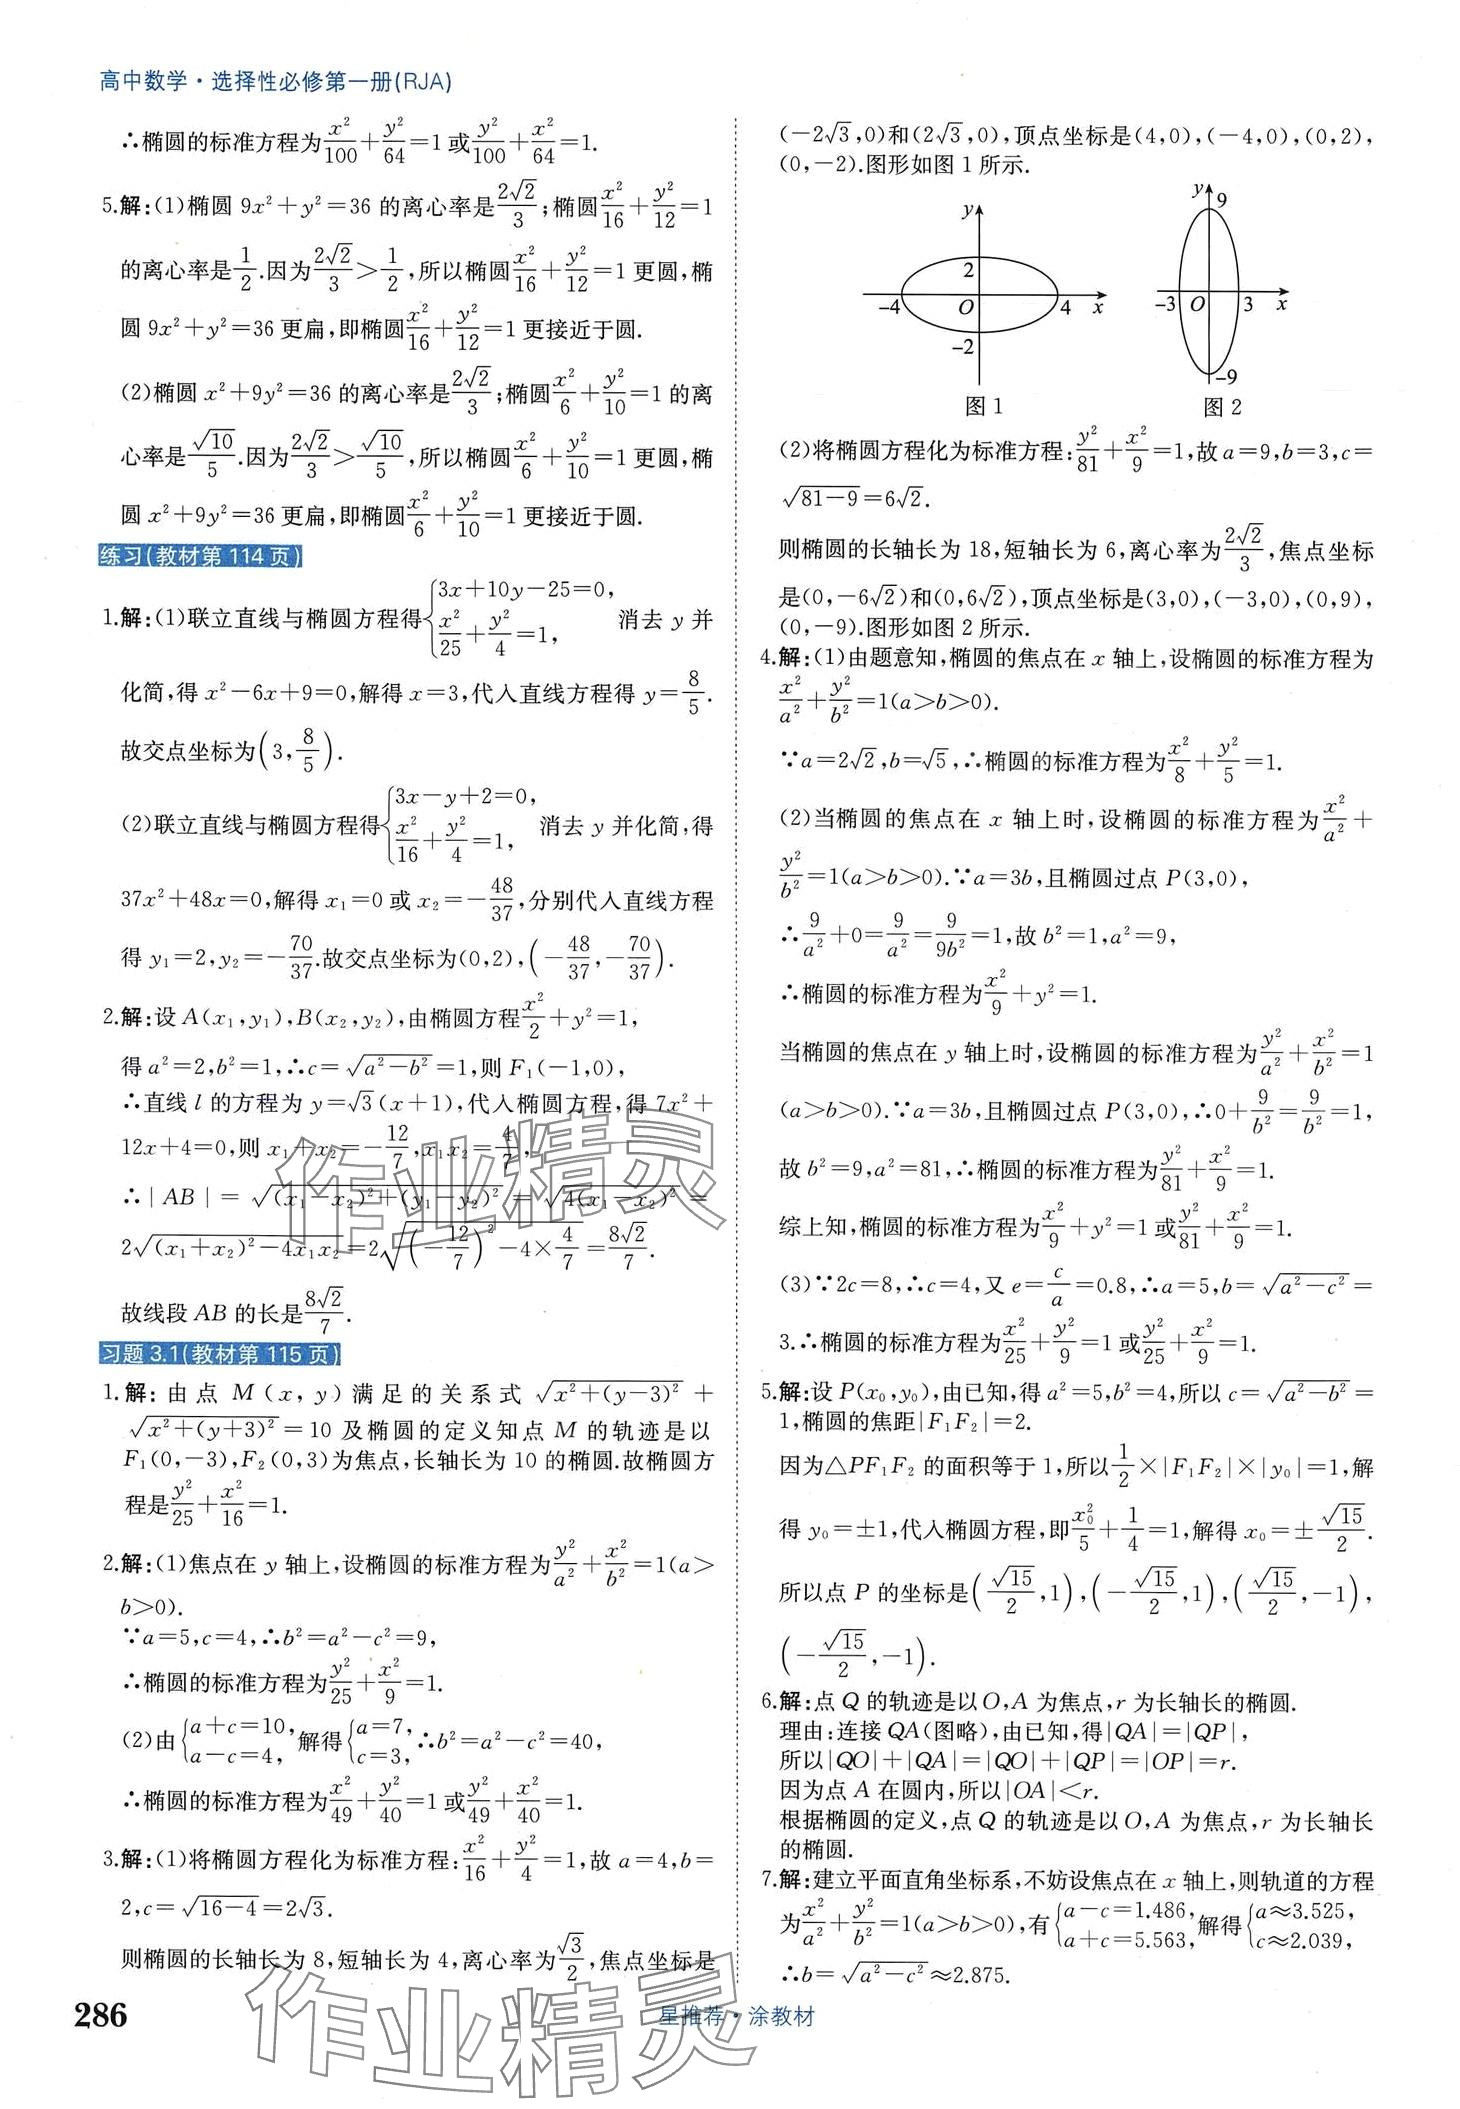 高中数学·选择性必修第一册(RJA)
∴椭圆的标准方程为x²/100+y²/64=1或y²/100+x²/64=1.
5.解:(1)椭圆 9x²+y²=36 的离心率是2√2/3;椭圆x²/16+y²/12=1
的离心率是1/2.因为2√2/3>1/2,所以椭圆x²/16+y²/12=1更圆,椭
圆 9x²+y²=36 更扁,即椭圆x²/16+y²/12=1更接近于圆.
(2)椭圆 x²+9y²=36 的离心率是2√2/3;椭圆x²/6+y²/10=1的离
心率是√10/5.因为2√2/3>√10/5,所以椭圆x²/6+y²/10=1更圆,椭
圆 x²+9y²=36 更扁,即椭圆x²/6+y²/10=1更接近于圆.
练习(教材第 114 页)
1.解:(1)联立直线与椭圆方程得{3x+10y-25=0, x²/25+y²/4=1, 消去 y 并
化简,得 x²-6x+9=0,解得 x=3,代入直线方程得 y=8/5.
故交点坐标为(3,8/5).
(2)联立直线与椭圆方程得{3x-y+2=0, x²/16+y²/4=1, 消去 y 并化简,得
37x²+48x=0,解得 x₁=0 或 x₂=-48/37,分别代入直线方程
得 y₁=2,y₂=-70/37.故交点坐标为(0,2),(-48/37,-70/37).
2.解:设 A(x₁,y₁),B(x₂,y₂),由椭圆方程x²/2+y²=1,
得 a²=2,b²=1,∴c=√(a²-b²)=1,则 F₁(-1,0),
∴直线 l 的方程为 y=√3(x+1),代入椭圆方程,得 7x²+
12x+4=0,则 x₁+x₂=-12/7,x₁x₂=4/7,
∴|AB|=√((x₁-x₂)²+(y₁-y₂)²)=√(4(x₁-x₂)²)=
2√((x₁+x₂)²-4x₁x₂)=2√((-12/7)²-4×4/7)=8√2/7.
故线段 AB 的长是8√2/7.
习题 3.1(教材第 115 页)
1.解:由点 M(x,y)满足的关系式√(x²+(y-3)²)+
√(x²+(y+3)²)=10 及椭圆的定义知点 M 的轨迹是以
F₁(0,-3),F₂(0,3)为焦点,长轴长为 10 的椭圆.故椭圆方
程是y²/25+x²/16=1.
2.解:(1)焦点在 y 轴上,设椭圆的标准方程为y²/a²+x²/b²=1(a>
b>0).
∵a=5,c=4,∴b²=a²-c²=9,
∴椭圆的标准方程为y²/25+x²/9=1.
(2)由{a+c=10, a-c=4, 解得{a=7, c=3, ∴b²=a²-c²=40,
∴椭圆的标准方程为x²/49+y²/40=1或y²/49+x²/40=1.
3.解:(1)将椭圆方程化为标准方程:x²/16+y²/4=1,故 a=4,b=
2,c=√(16-4)=2√3.
则椭圆的长轴长为 8,短轴长为 4,离心率为√3/2,焦点坐标是
(-2√3,0)和(2√3,0),顶点坐标是(4,0),(-4,0),(0,2),
(0,-2).图形如图 1 所示.
y
2
-4
O
4
x
-2
图 1
y
9
-3
O
3
x
-9
图 2
(2)将椭圆方程化为标准方程:y²/81+x²/9=1,故 a=9,b=3,c=
√(81-9)=6√2.
则椭圆的长轴长为 18,短轴长为 6,离心率为2√2/3,焦点坐标
是(0,-6√2)和(0,6√2),顶点坐标是(3,0),(-3,0),(0,9),
(0,-9).图形如图 2 所示.
4.解:(1)由题意知,椭圆的焦点在 x 轴上,设椭圆的标准方程为
x²/a²+y²/b²=1(a>b>0).
∵a=2√2,b=√5,∴椭圆的标准方程为x²/8+y²/5=1.
(2)当椭圆的焦点在 x 轴上时,设椭圆的标准方程为x²/a²+
y²/b²=1(a>b>0).∵a=3b,且椭圆过点 P(3,0),
∴9/a²+0=9/a²=9/9b²=1,故 b²=1,a²=9,
∴椭圆的标准方程为x²/9+y²=1.
当椭圆的焦点在 y 轴上时,设椭圆的标准方程为y²/a²+x²/b²=1
(a>b>0).∵a=3b,且椭圆过点 P(3,0),∴0+9/b²=9/b²=1,
故 b²=9,a²=81,∴椭圆的标准方程为y²/81+x²/9=1.
综上知,椭圆的标准方程为x²/9+y²=1或y²/81+x²/9=1.
(3)∵2c=8,∴c=4,又 e=c/a=0.8,∴a=5,b=√(a²-c²)=
3.∴椭圆的标准方程为x²/25+y²/9=1或y²/25+x²/9=1.
5.解:设 P(x₀,y₀),由已知,得 a²=5,b²=4,所以 c=√(a²-b²)=
1,椭圆的焦距|F₁F₂|=2.
因为△PF₁F₂ 的面积等于 1,所以1/2×|F₁F₂|×|y₀|=1,解
得 y₀=±1,代入椭圆方程,即x₀²/5+1/4=1,解得 x₀=±√15/2.
所以点 P 的坐标是(√15/2,1),(-√15/2,1),(√15/2,-1),
(-√15/2,-1).
6.解:点 Q 的轨迹是以 O,A 为焦点,r 为长轴长的椭圆.
理由:连接 QA(图略),由已知,得|QA|=|QP|,
所以|QO|+|QA|=|QO|+|QP|=|OP|=r.
因为点 A 在圆内,所以|OA|<r.
根据椭圆的定义,点 Q 的轨迹是以 O,A 为焦点,r 为长轴长
的椭圆.
7.解:建立平面直角坐标系,不妨设焦点在 x 轴上,则轨道的方程
为x²/a²+y²/b²=1(a>b>0),有{a-c=1.486, a+c=5.563, 解得{a≈3.525, c≈2.039,
∴b=√(a²-c²)≈2.875.
286
星推荐·涂教材
作业精灵
作业精灵